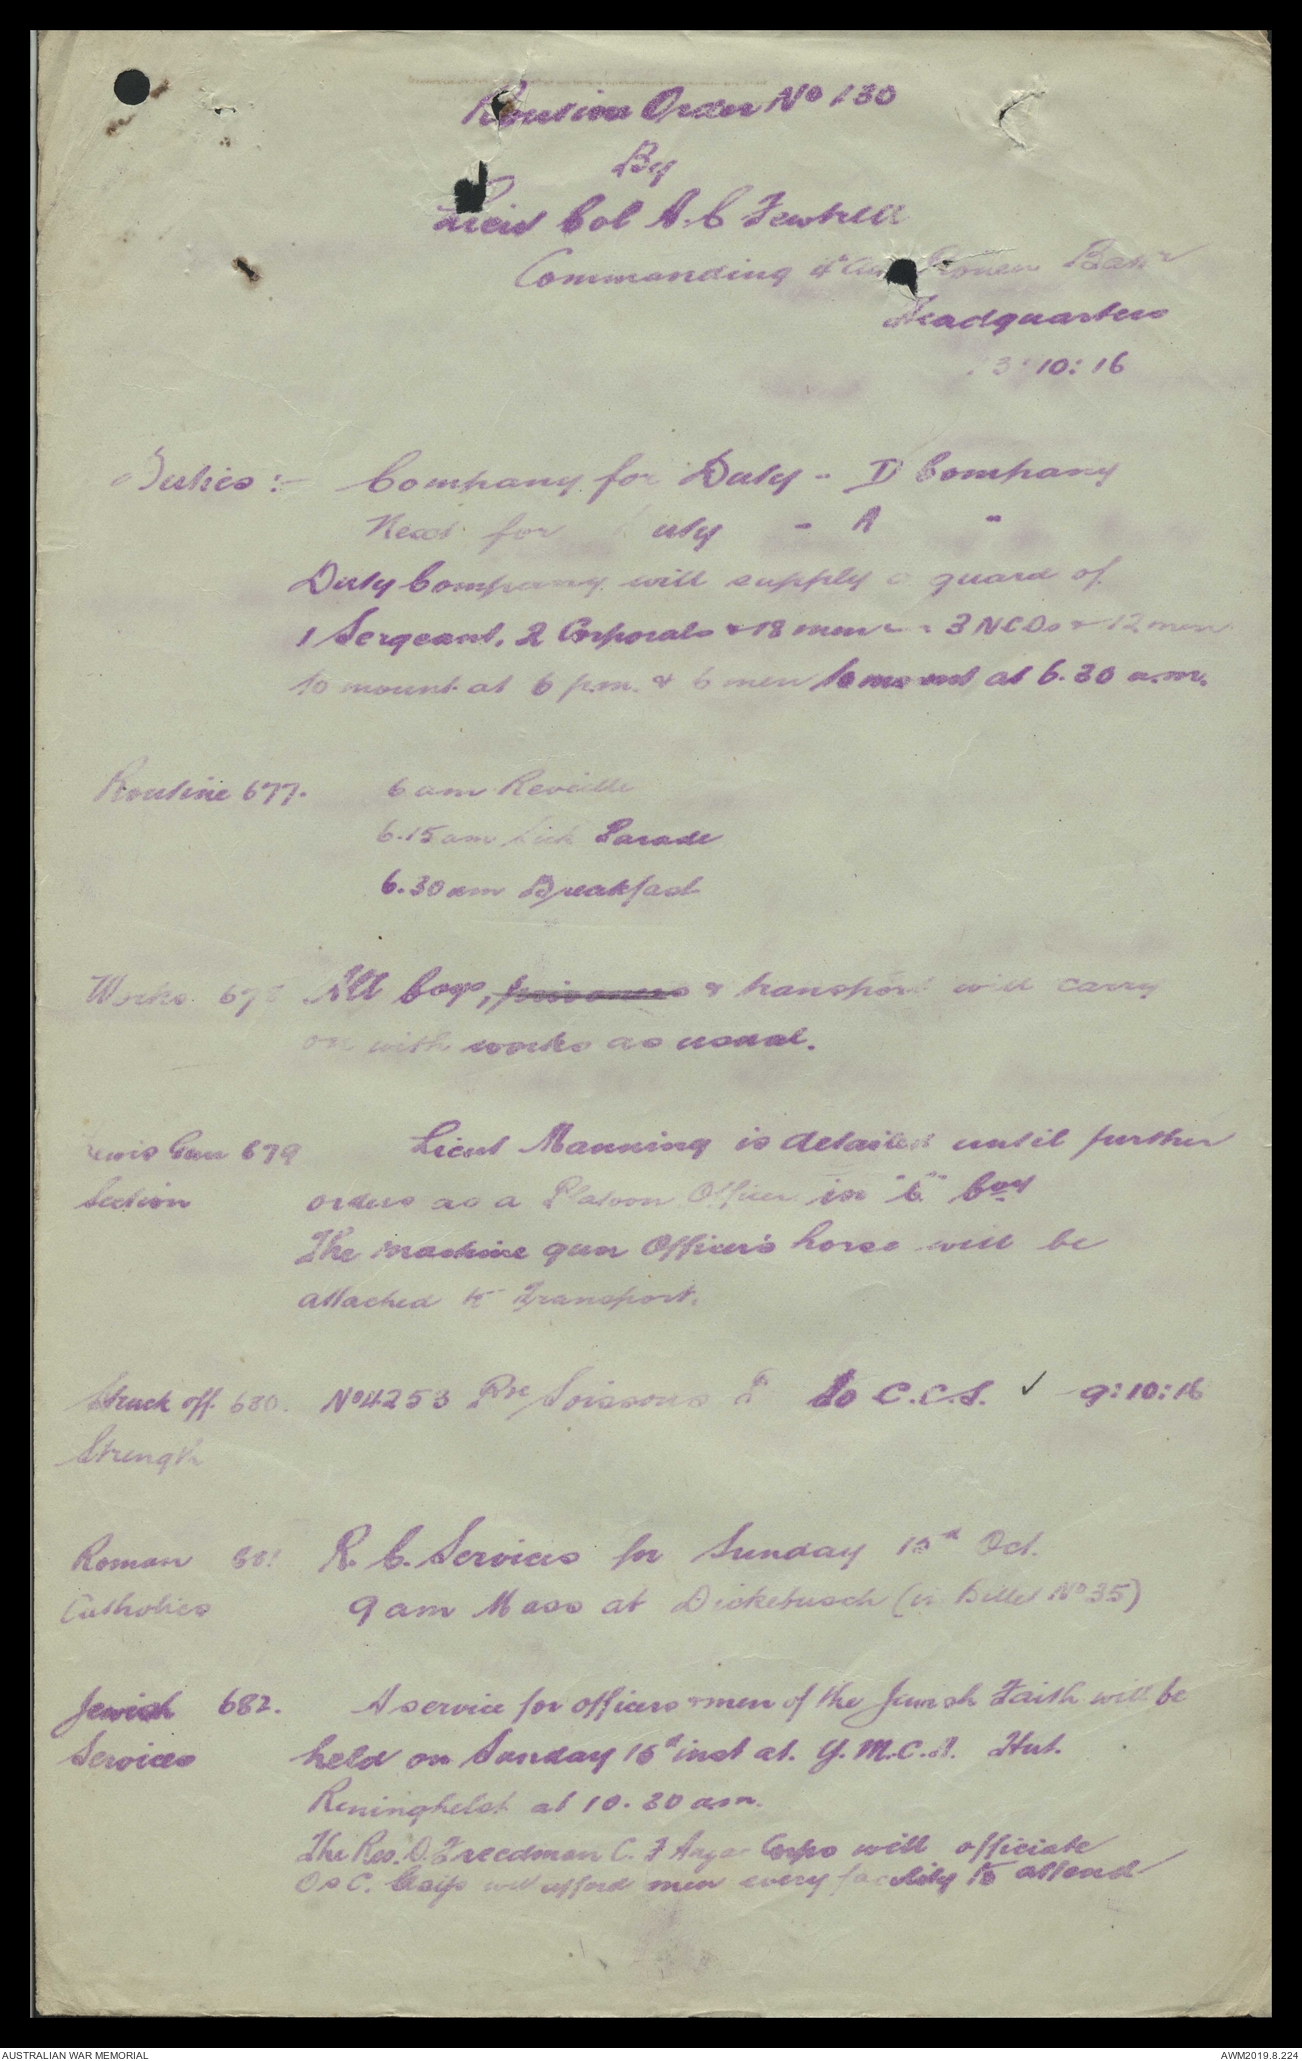 Routine Order No 130
By
Lieut Col A.C Fewtrell
Commanding 4th Aus Pioneer Battn
Headquarters
3:10:16
Duties:- Company for Duty - D Company
Next for Duty - A "
Duty Company will supply a guard of
1 Sergeant, 2 Corporals & 18 men 3 NCOs & 12 men
to mount at 6 p.m. & 6 men to mount at 6.30 a.m.
Routine 677. 6 am Reveille
6.15 am Sick Parade
6.30 am Breakfast
Works 678 All Coys, prisoners & transport will carry
on with works as usual.
Lewis Gun 679 Lieut Manning is detailed until further
Section orders as a Platoon Officer in "C" Coy
The machine gun Officer's horse will be
attached to Transport.
Struck off 680. No 4253 Pte Soissons to C.C.S. ✓ 9:10:16
Strength
Roman 681 R.C. Services for Sunday 15th Oct.
Catholics 9 am Mass at Dickebusch (in Billet No 35)
Jewish 682. A service for officers & men of the Jewish Faith will be
Services held on Sunday 15th inst at. Y.M.C.A. Hut.
Reninghelst at 10.30 am.
The Rev. D. Freedman C.F Anzac Corps will officiate
Os C. Coys will afford men every facility to attend
AUSTRALIAN WAR MEMORIAL AWM2019.8.224